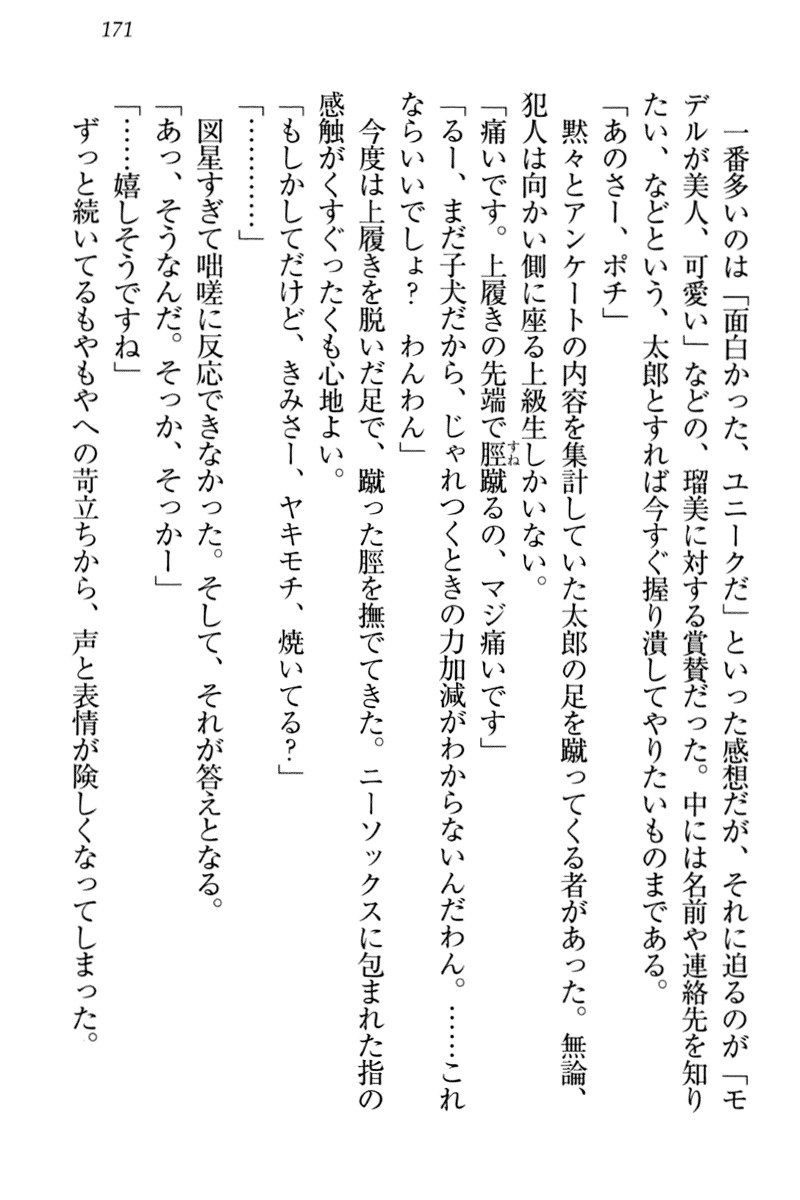 171
一番多いのは「面白かった、ユニークだ」といった感想だが、それに迫るのが「モ
デルが美人、可愛い」などの、瑠美に対する賞賛だった。中には名前や連絡先を知り
たい、などという、太郎とすれば今すぐ握り潰してやりたいものまである。
「あのさー、ポチ」
黙々とアンケートの内容を集計していた太郎の足を蹴ってくる者があった。無論、
犯人は向かい側に座る上級生しかいない。
「痛いです。上履きの先端で脛蹴るの、マジ痛いです」
すね
「るー、まだ子犬だから、じゃれつくときの力加減がわからないんだわん。……これ
ならいいでしょ？　わんわん」
今度は上履きを脱いだ足で、蹴った脛を撫でてきた。ニーソックスに包まれた指の
感触がくすぐったくも心地よい。
「もしかしてだけど、きみさー、ヤキモチ、焼いてる？」
「…………」
図星すぎて咄嗟に反応できなかった。そして、それが答えとなる。
「あっ、そうなんだ。そっか、そっかー」
「……嬉しそうですね」
ずっと続いてるもやもやへの苛立ちから、声と表情が険しくなってしまった。